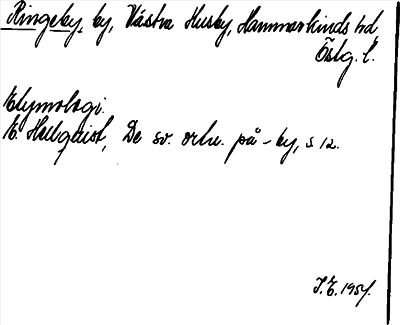 Ringeby, by, Västra Husby, Hammarkinds hd,
Östg. l.
Etymologi.
E. Hellquist, De sv. ortn. på -by, s 12.
I.E. 1957.